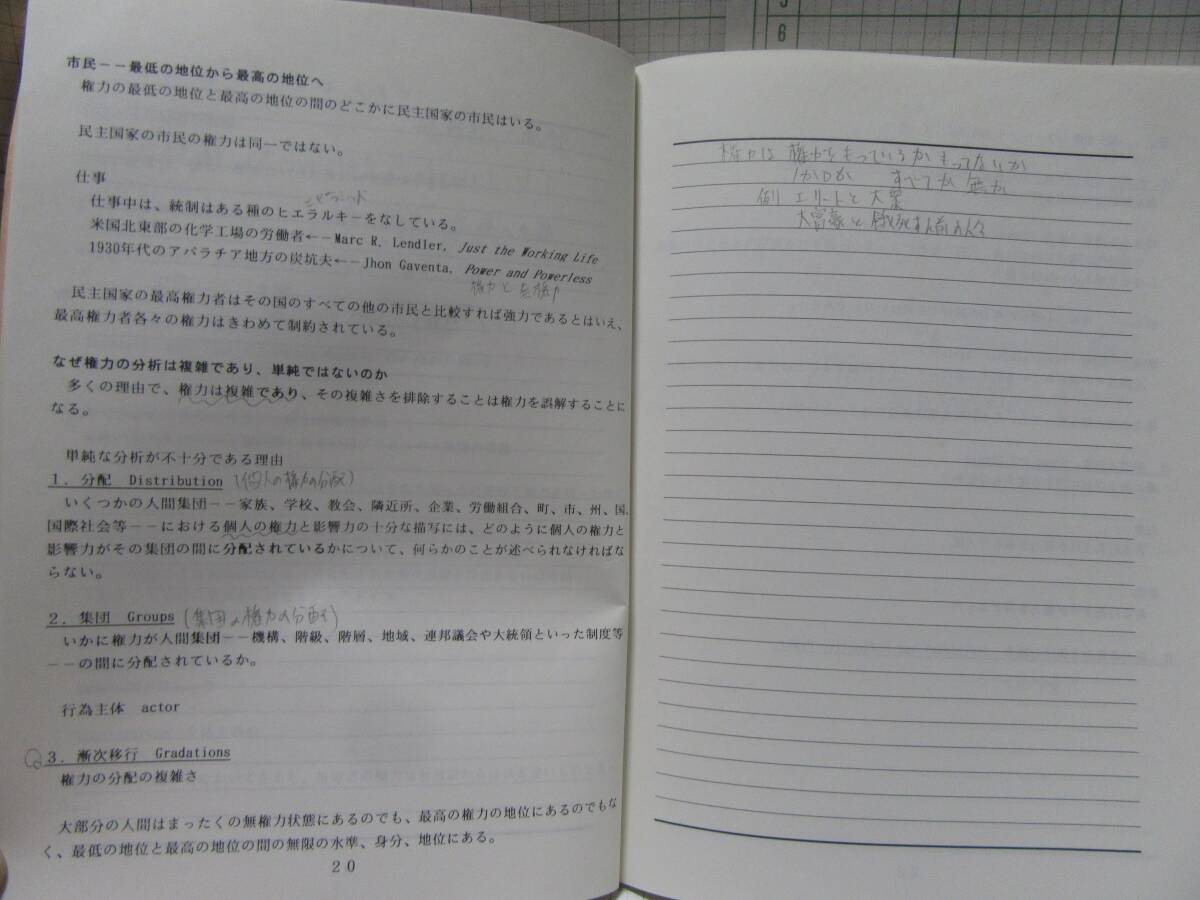 市民－－最低の地位から最高の地位へ
権力の最低の地位と最高の地位の間のどこかに民主国家の市民はいる。
民主国家の市民の権力は同一ではない。
仕事
仕事中は、統制はある種のヒエラルキ－をなしている。
米国北東部の化学工場の労働者←－Marc R. Lendler, Just the Working Life
1930年代のアパラチア地方の炭坑夫←－Jhon Gaventa, Power and Powerless
権力と無権力
民主国家の最高権力者はその国のすべての他の市民と比較すれば強力であるとはいえ、
最高権力者各々の権力はきわめて制約されている。
なぜ権力の分析は複雑であり、単純ではないのか
多くの理由で、権力は複雑であり、その複雑さを排除することは権力を誤解することに
なる。
単純な分析が不十分である理由
１．分配 Distribution (個人の権力の分配)
いくつかの人間集団－－家族、学校、教会、隣近所、企業、労働組合、町、市、州、国、
国際社会等－－における個人の権力と影響力の十分な描写には、どのように個人の権力と
影響力がその集団の間に分配されているかについて、何らかのことが述べられなければな
らない。
２．集団 Groups (集団の権力の分配)
いかに権力が人間集団－－機構、階級、階層、地域、連邦議会や大統領といった制度等
－－の間に分配されているか。
行為主体 actor
３．漸次移行 Gradations
権力の分配の複雑さ
大部分の人間はまったくの無権力状態にあるのでも、最高の権力の地位にあるのでもな
く、最低の地位と最高の地位の間の無限の水準、身分、地位にある。
２０
権力は 権力をもっているか もってないか
1か0か すべてか無か
例 エリートと大衆
大富豪と餓死寸前の人々
5
6